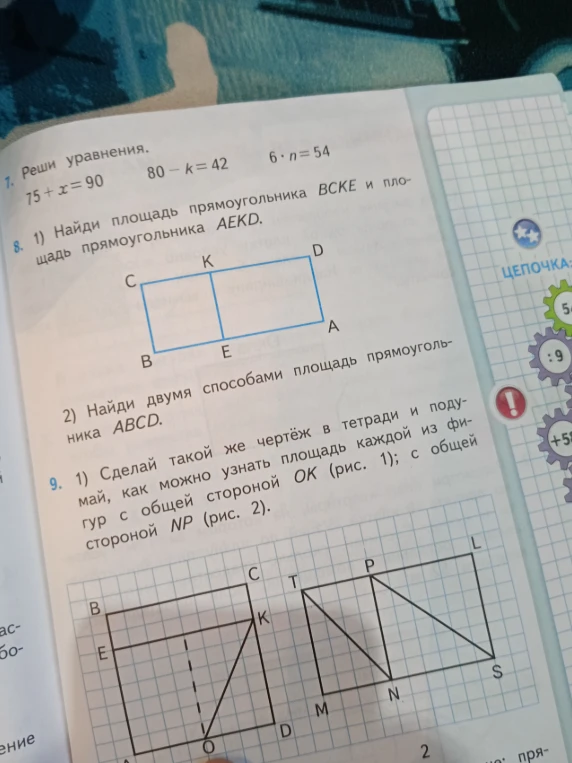 7. Реши уравнения.
75 + x = 90 80 − k = 42 6 · n = 54
8. 1) Найди площадь прямоугольника BCKE и пло-
щадь прямоугольника AEKD.
C K D
B E A
2) Найди двумя способами площадь прямоуголь-
ника ABCD.
9. 1) Сделай такой же чертёж в тетради и поду-
май, как можно узнать площадь каждой из фи-
гур с общей стороной OK (рис. 1); с общей
стороной NP (рис. 2).
B C T P L
E K
M N S
O D
2
ас-
бо-
ение
пря-
ЦЕПОЧКА:
:9
!